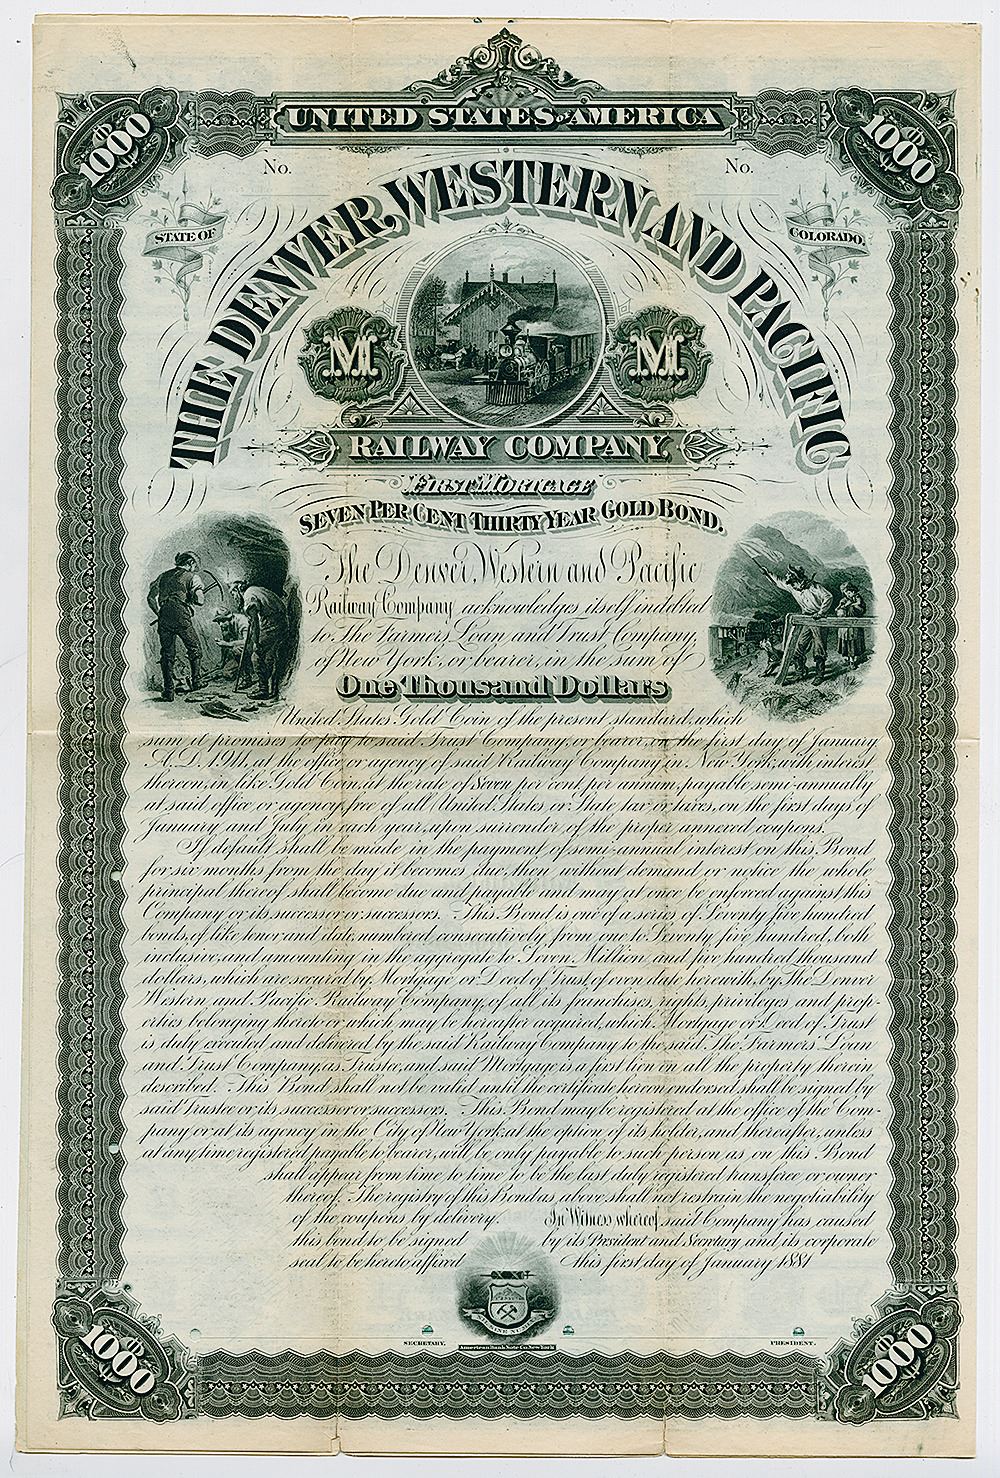 UNITED STATES OF AMERICA
1000
1000
No.
No.
STATE OF
COLORADO.
THE DENVER, WESTERN AND PACIFIC
M
M
RAILWAY COMPANY.
FIRST MORTGAGE
SEVEN PER CENT THIRTY YEAR GOLD BOND.
The Denver, Western and Pacific
Railway Company acknowledges itself indebted
to The Farmers' Loan and Trust Company,
of New York, or bearer, in the sum of
One Thousand Dollars
United States Gold Coin of the present standard, which
sum it promises to pay to said Trust Company, or bearer, on the first day of January,
A.D. 1911, at the office or agency of said Railway Company in New York, with interest
thereon, in like Gold Coin, at the rate of Seven per cent per annum, payable semi-annually
at said office or agency, free of all United States or State tax or taxes, on the first days of
January and July in each year, upon surrender of the proper annexed coupons.
If default shall be made in the payment of semi-annual interest on this Bond
for six months from the day it becomes due, then without demand or notice the whole
principal thereof shall become due and payable and may at once be enforced against this
Company or its successor or successors. This Bond is one of a series of Seventy five hundred
bonds, of like tenor and date, numbered consecutively from one to Seventy five hundred, both
inclusive, and amounting in the aggregate to Seven Million and five hundred thousand
dollars, which are secured by Mortgage or Deed of Trust, of even date herewith, by The Denver
Western and Pacific Railway Company, of all its franchises, rights, privileges and prop-
erties belonging thereto or which may be hereafter acquired, which Mortgage or Deed of Trust
is duly executed and delivered by the said Railway Company to the said The Farmers' Loan
and Trust Company, as Trustee, and said Mortgage is a first lien on all the property therein
described. This Bond shall not be valid until the certificate hereon endorsed shall be signed by
said Trustee or its successor or successors. This Bond may be registered at the office of the Com-
pany or at its agency in the City of New York, at the option of its holder, and thereafter, unless
at any time registered payable to bearer, will be only payable to such person as on this Bond
shall appear from time to time to be the last duly registered transferee or owner
thereof. The registry of this Bond as above shall not restrain the negotiability
of the coupons by delivery. In Witness whereof said Company has caused
this bond to be signed by its President and Secretary, and its corporate
seal to be hereto affixed this first day of January 1881
NIL SINE NUMINE
SECRETARY.
PRESIDENT.
American Bank Note Co. New York
1000
1000